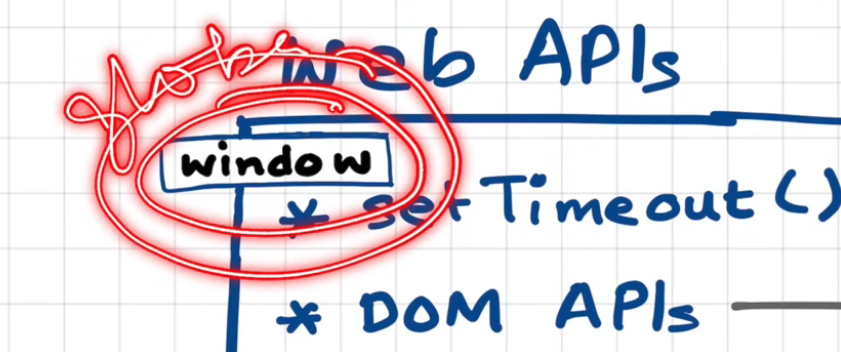 Web APIs
window
* setTimeout()
* DOM APIs